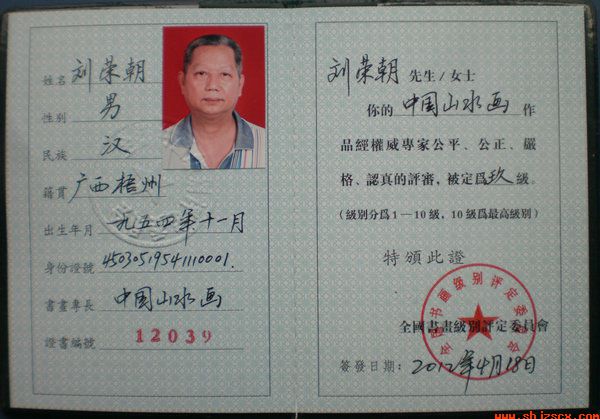 姓名 刘荣朝
性别 男
民族 汉
籍貫 广西梧州
出生年月 一九五四年十一月
身份證號 45030519541110001.
書畫專長 中国山水画
證書編號 12039
刘荣朝 先生/女士
你的 中国山水画 作
品經權威專家公平、公正、嚴
格、認真的評審，被定爲 玖 級。
(級别分爲1—10級，10級爲最高級别)
特頒此證
全国书画级别评定委员会
全國書畫級别評定委員會
簽發日期：2012年4月18日
www.shjzscx.com